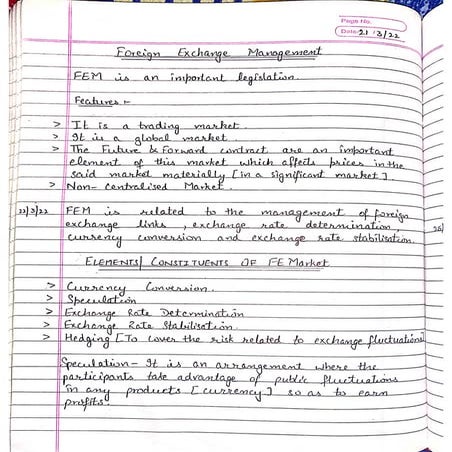 Page No.
Date: 21/3/22
Foreign Exchange Management
FEM is an important legislation.
Features:-
> It is a trading market.
> It is a global market.
> The Future & Forward contract are an important
element of this market which affects prices in the
said market materially [in a significant market]
> Non-centralised Market.
22/3/22 FEM is related to the management of foreign
exchange links, exchange rate determination,
currency conversion and exchange rate stabilisation.
ELEMENTS/CONSTITUENTS OF FE Market
> Currency Conversion.
> Speculation
> Exchange Rate Determination
> Exchange Rate Stabilisation.
> Hedging [To cover the risk related to exchange fluctuations]
Speculation- It is an arrangement where the
participants take advantage of public fluctuations
in any products [currency] so as to earn
profits.